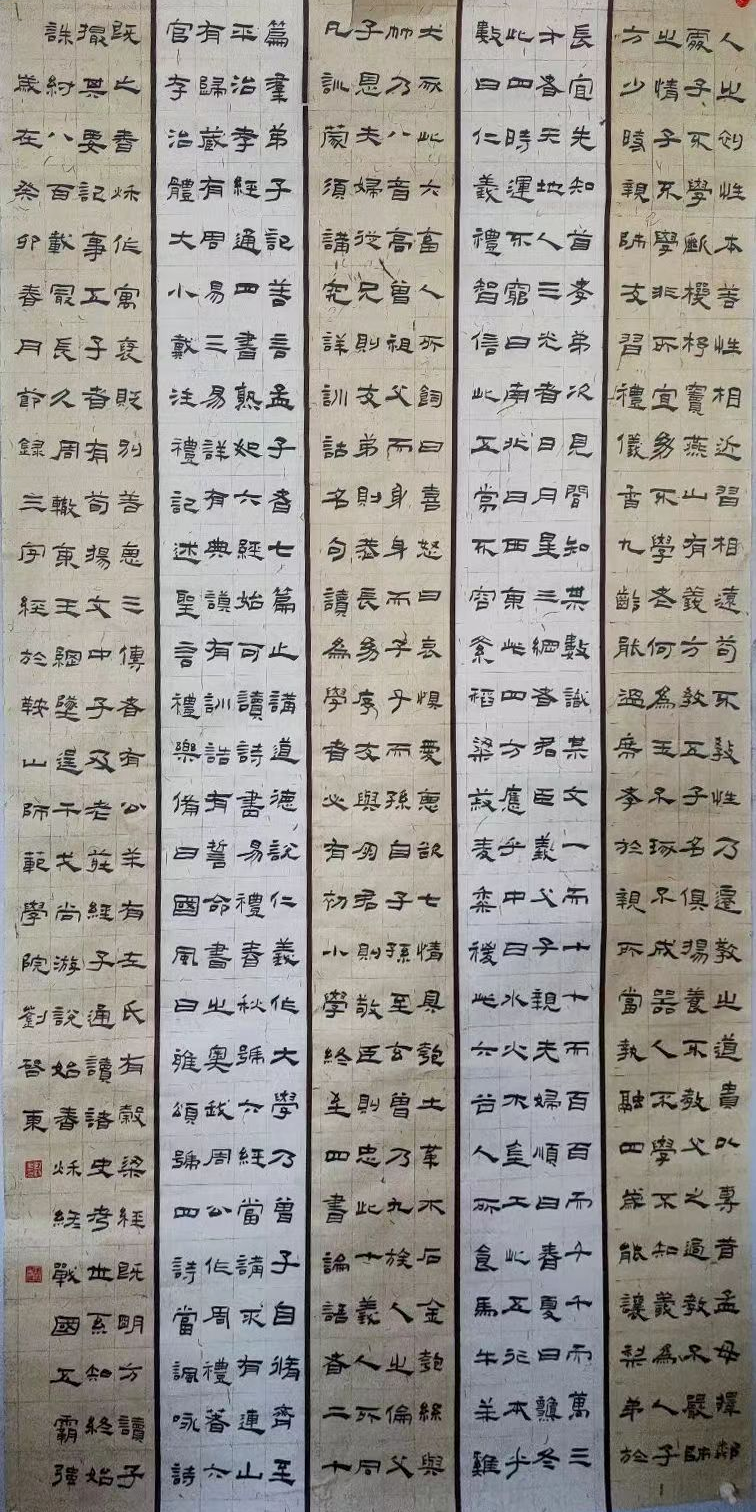 人之初性本善性相近習相遠苟不教性乃遷教之道貴以專昔孟母擇鄰
處子不學斷機杼竇燕山有義方教五子名俱揚養不教父之過教不嚴師
之情子不學非所宜幼不學老何為玉不琢不成器人不學不知義為人子
方少時親師友習禮儀香九齡能溫席孝於親所當執融四歲能讓梨弟於
長宜先知首孝弟次見聞知某數識某文一而十十而百百而千千而萬三
才者天地人三光者日月星三綱者君臣義父子親夫婦順曰春夏曰秋冬
此四時運不窮曰南北曰西東此四方應乎中曰水火木金土此五行本乎
數曰仁義禮智信此五常不容紊稻粱菽麥黍稷此六穀人所食馬牛羊雞
犬豕此六畜人所飼曰喜怒曰哀懼愛惡欲七情具匏土革木石金匏絲與
竹乃八音高曾祖父而身身而子子而孫自子孫至玄曾乃九族人之倫父
子恩夫婦從兄則友弟則恭長幼序友與朋君則敬臣則忠此十義人所同
凡訓蒙須講究詳訓詁名句讀為學者必有初小學終至四書論語者二十
篇羣弟子記善言孟子者七篇止講道德說仁義作大學乃曾子自脩齊至
平治孝經通四書熟如六經始可讀詩書易禮春秋號六經當講求有連山
有歸藏有周易三易詳有典謨有訓誥有誓命書之奧我周公作周禮著六
官存治體大小戴注禮記述聖言禮樂備曰國風曰雅頌號四詩當諷咏詩
既亡春秋作寓褒貶別善惡三傳者有公羊有左氏有穀梁經既明方讀子
撮其要記事五子者有荀揚文中子及老莊經子通讀諸史考世系知終始
誅紂八百載最長久周轍東王綱墜逞干戈尚游說始春秋終戰國五霸強
歲在癸卯春月節錄三字經於鞍山師範學院劉東